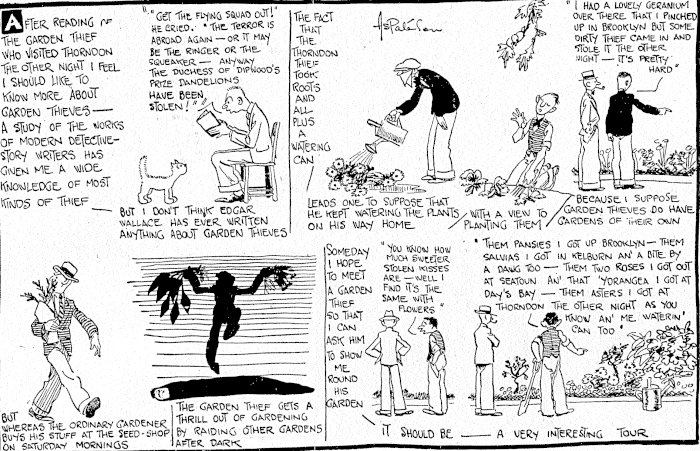 AFTER READING OF
THE GARDEN THIEF
WHO VISITED THORNDON
THE OTHER NIGHT I FEEL
I SHOULD LIKE TO
KNOW MORE ABOUT
GARDEN THIEVES —
A STUDY OF THE WORKS
OF MODERN DETECTIVE-
STORY WRITERS HAS
GIVEN ME A WIDE
KNOWLEDGE OF MOST
KINDS OF THIEF —
"GET THE FLYING SQUAD OUT!"
HE CRIED. "THE TERROR IS
ABROAD AGAIN — OR IT MAY
BE THE RINGER OR THE
SQUEAKER — ANYWAY
THE DUCHESS OF DIPWOOD'S
PRIZE DANDELIONS
HAVE BEEN
STOLEN!"
BUT I DON'T THINK EDGAR
WALLACE HAS EVER WRITTEN
ANYTHING ABOUT GARDEN THIEVES
THE FACT
THAT
THE
THORNDON
THIEF
TOOK
ROOTS
AND
ALL
PLUS
A
WATERING
CAN
LEADS ONE TO SUPPOSE THAT
HE KEPT WATERING THE PLANTS
ON HIS WAY HOME
WITH A VIEW TO
PLANTING THEM
"I HAD A LOVELY GERANIUM
OVER THERE THAT I PINCHED
UP IN BROOKLYN BUT SOME
DIRTY THIEF CAME IN AND
STOLE IT THE OTHER
NIGHT — IT'S PRETTY
HARD"
BECAUSE I SUPPOSE
GARDEN THIEVES DO HAVE
GARDENS OF THEIR OWN
BUT
WHEREAS THE ORDINARY GARDENER
BUYS HIS STUFF AT THE SEED-SHOP
ON SATURDAY MORNINGS
THE GARDEN THIEF GETS A
THRILL OUT OF GARDENING
BY RAIDING OTHER GARDENS
AFTER DARK
SOMEDAY
I HOPE
TO MEET
A GARDEN
THIEF
SO THAT
I CAN
ASK HIM
TO SHOW
ME
ROUND
HIS
GARDEN
"YOU KNOW HOW
MUCH SWEETER
STOLEN KISSES
ARE — WELL I
FIND IT'S THE
SAME WITH
FLOWERS"
"THEM PANSIES I GOT UP BROOKLYN — THEM
SALVIAS I GOT IN KELBURN AN' A BITE BY
A DAWG TOO — THEM TWO ROSES I GOT OUT
AT SEATOUN AN' THAT 'YDRANGEA I GOT AT
DAY'S BAY — THEM ASTERS I GOT AT
THORNDON THE OTHER NIGHT AS YOU
KNOW AN' ME WATERIN'
CAN TOO"
IT SHOULD BE — A VERY INTERESTING TOUR